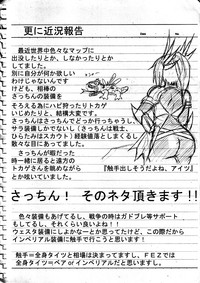 更に近況報告
最近世界中色々なマップに
出没したりとか、しなかったりとか
してました。
別に自分が何か欲しい
わけじゃないけど、
けども、相棒の
さっちんの装備を
そろえる為にハピ狩ったりトカゲ
いじめたりと、結構大変です。
さっちんはさっちんでどっか行っちゃうし、
サラ装備しかでないし、さっちんは
ひらたみはスカウト）経験値落としまくるし、
散々な目にあってました。
さっちんが暇だった
時一緒に居ると遠方の
トカゲさんを眺めながら
さっちんがひとこと。
『触手出しそうだよね、アイツ』
さっちん！　そのネタ頂きます！！
色々装備もあげてるし、戦争の時はガドブレ等サポート
もしてるし、それくらい良いよね！！
ウェスタ装備にしよかなーとか思ってたけど、この際だから
インペリアル装備に触手で行こうと思います！
触手＝全身タイツと相場は決まってますし、ＦＥＺでは
全身タイツ＝ベア or インペリアルだと思います。